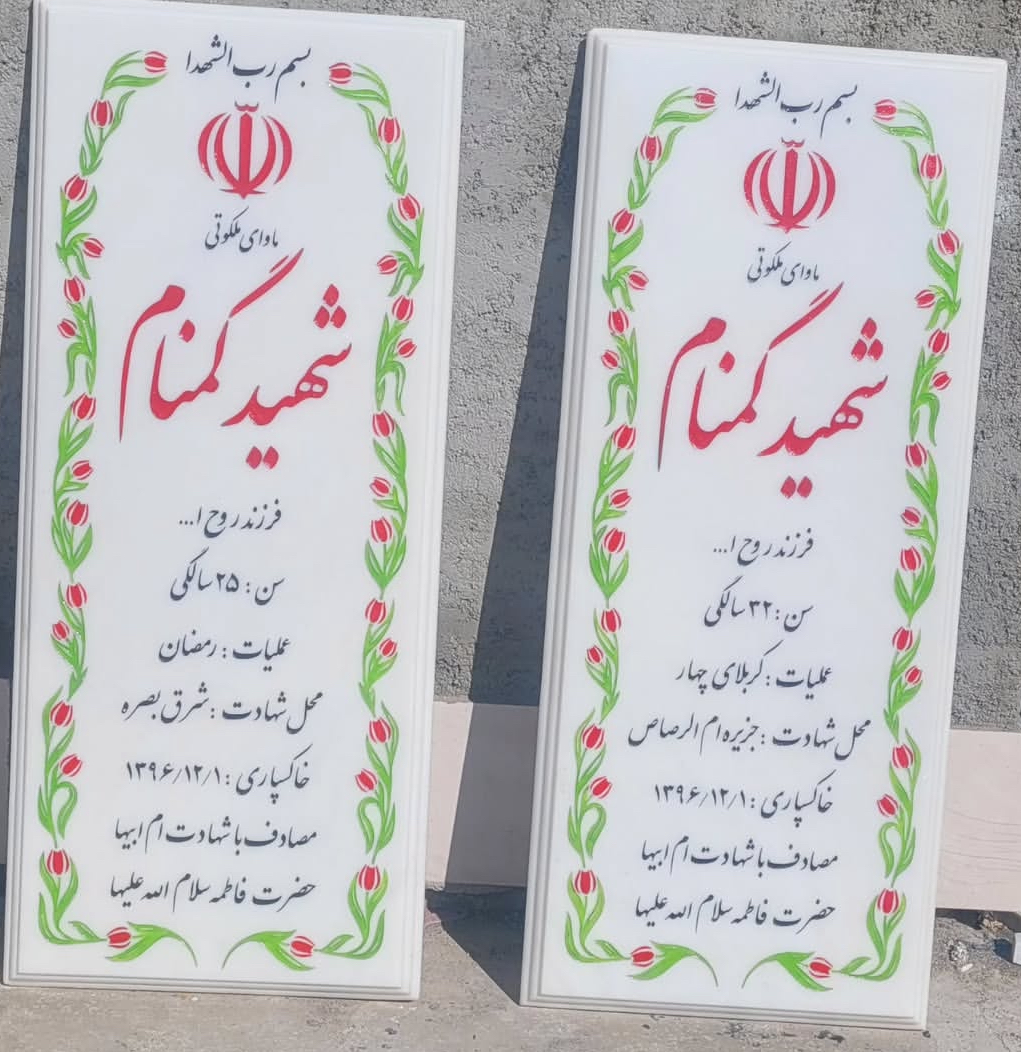 بسم رب الشهدا
ماوای ملکوتی
شهید گمنام
فرزند روح ا...
سن : ۲۵ سالگی
عملیات : رمضان
محل شهادت : شرق بصره
خاکسپاری : ۱۳۹۶/۱۲/۱
مصادف با شهادت ام ابیها
حضرت فاطمه سلام الله علیها
بسم رب الشهدا
ماوای ملکوتی
شهید گمنام
فرزند روح ا...
سن : ۳۲ سالگی
عملیات : کربلای چهار
محل شهادت : جزیره ام الرصاص
خاکسپاری : ۱۳۹۶/۱۲/۱
مصادف با شهادت ام ابیها
حضرت فاطمه سلام الله علیها